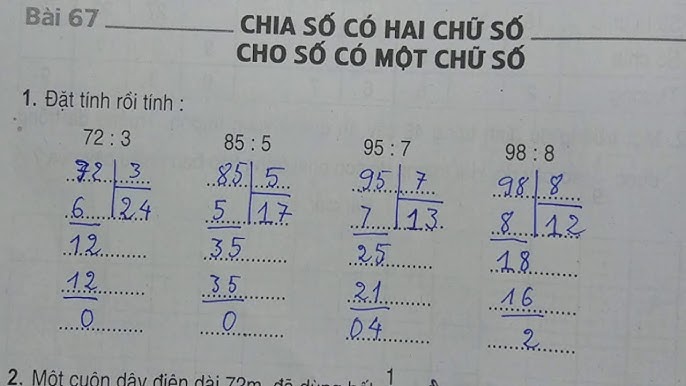 Bài 67 CHIA SỐ CÓ HAI CHỮ SỐ
CHO SỐ CÓ MỘT CHỮ SỐ
1. Đặt tính rồi tính :
72 : 3 85 : 5 95 : 7 98 : 8
72 3 85 5 95 7 98 8
6 24 5 17 7 13 8 12
12 35 25 18
12 35 21 16
0 0 04 2
2. Một cuộn dây điện dài 72m, đã dùng hết 1